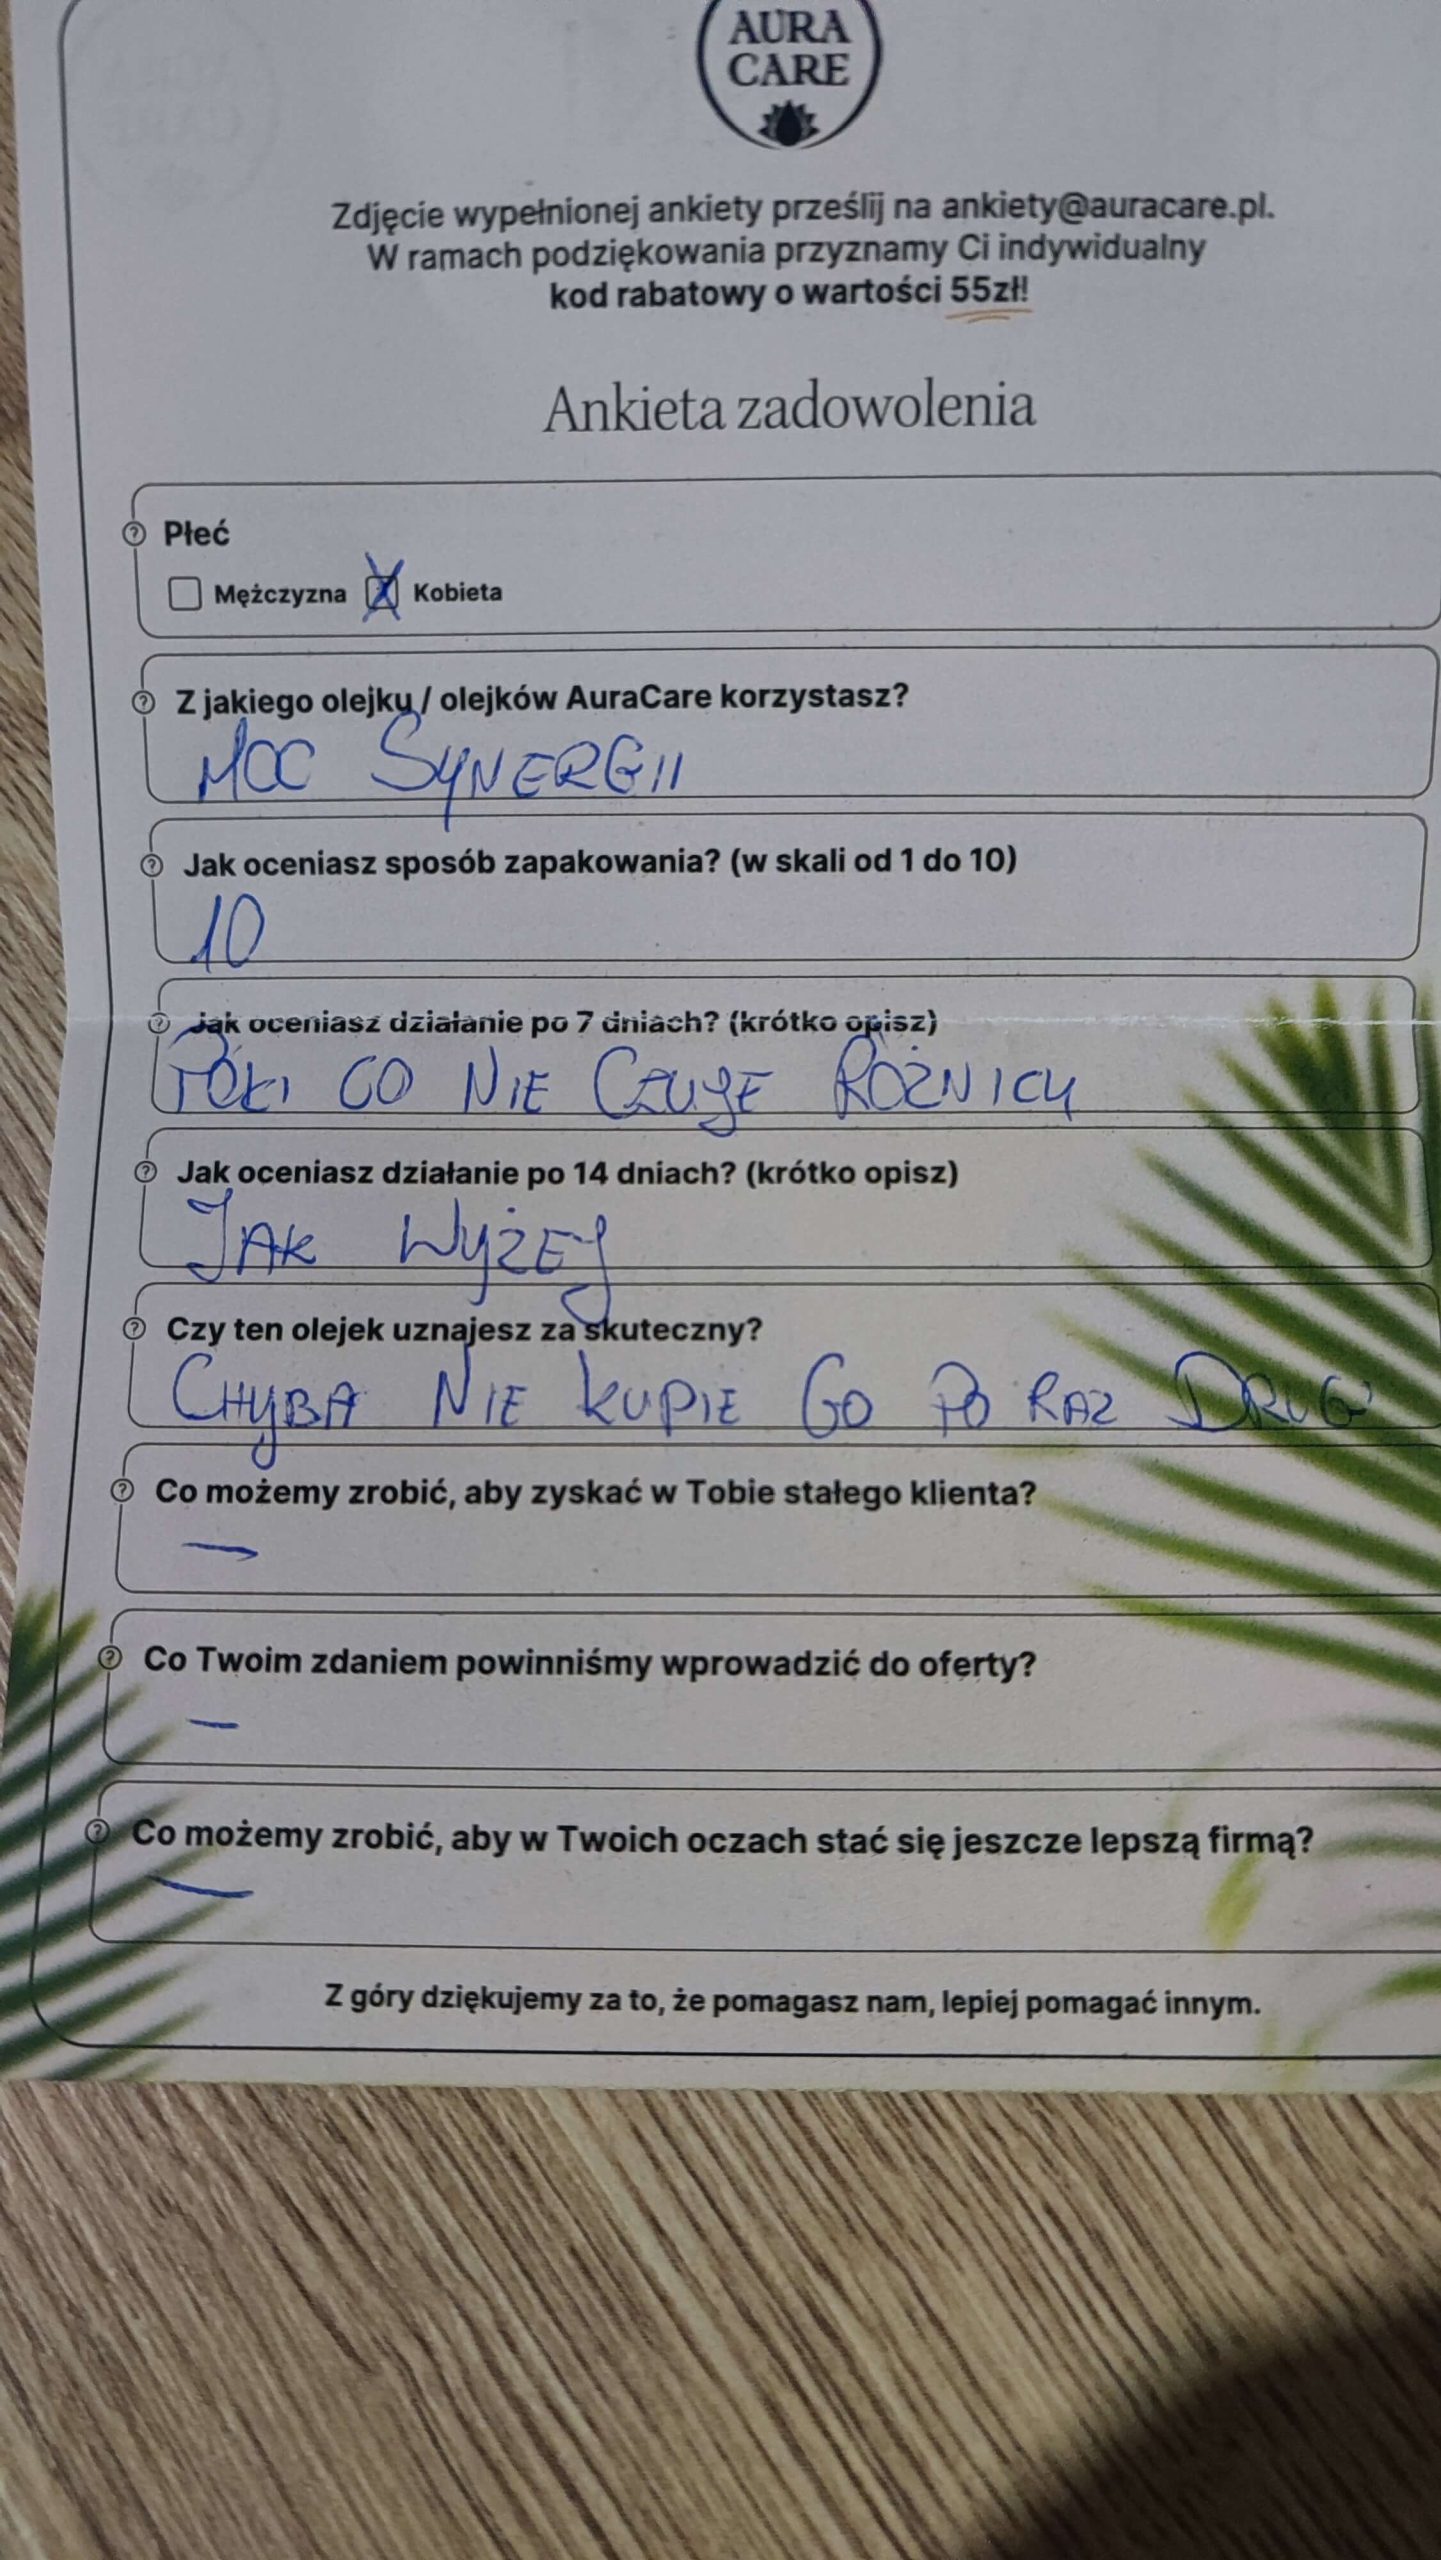 AURA
CARE
Zdjęcie wypełnionej ankiety prześlij na ankiety@auracare.pl.
W ramach podziękowania przyznamy Ci indywidualny
kod rabatowy o wartości 55zł!
Ankieta zadowolenia
Płeć
Mężczyzna X Kobieta
Z jakiego olejku / olejków AuraCare korzystasz?
MOC SYNERGII
Jak oceniasz sposób zapakowania? (w skali od 1 do 10)
10
Jak oceniasz działanie po 7 dniach? (krótko opisz)
PÓKI CO NIE CZUJE RÓŻNICY
Jak oceniasz działanie po 14 dniach? (krótko opisz)
JAK WYŻEJ
Czy ten olejek uznajesz za skuteczny?
CHYBA NIE KUPIE GO PO RAZ DRUGI
Co możemy zrobić, aby zyskać w Tobie stałego klienta?
—
Co Twoim zdaniem powinniśmy wprowadzić do oferty?
—
Co możemy zrobić, aby w Twoich oczach stać się jeszcze lepszą firmą?
—
Z góry dziękujemy za to, że pomagasz nam, lepiej pomagać innym.